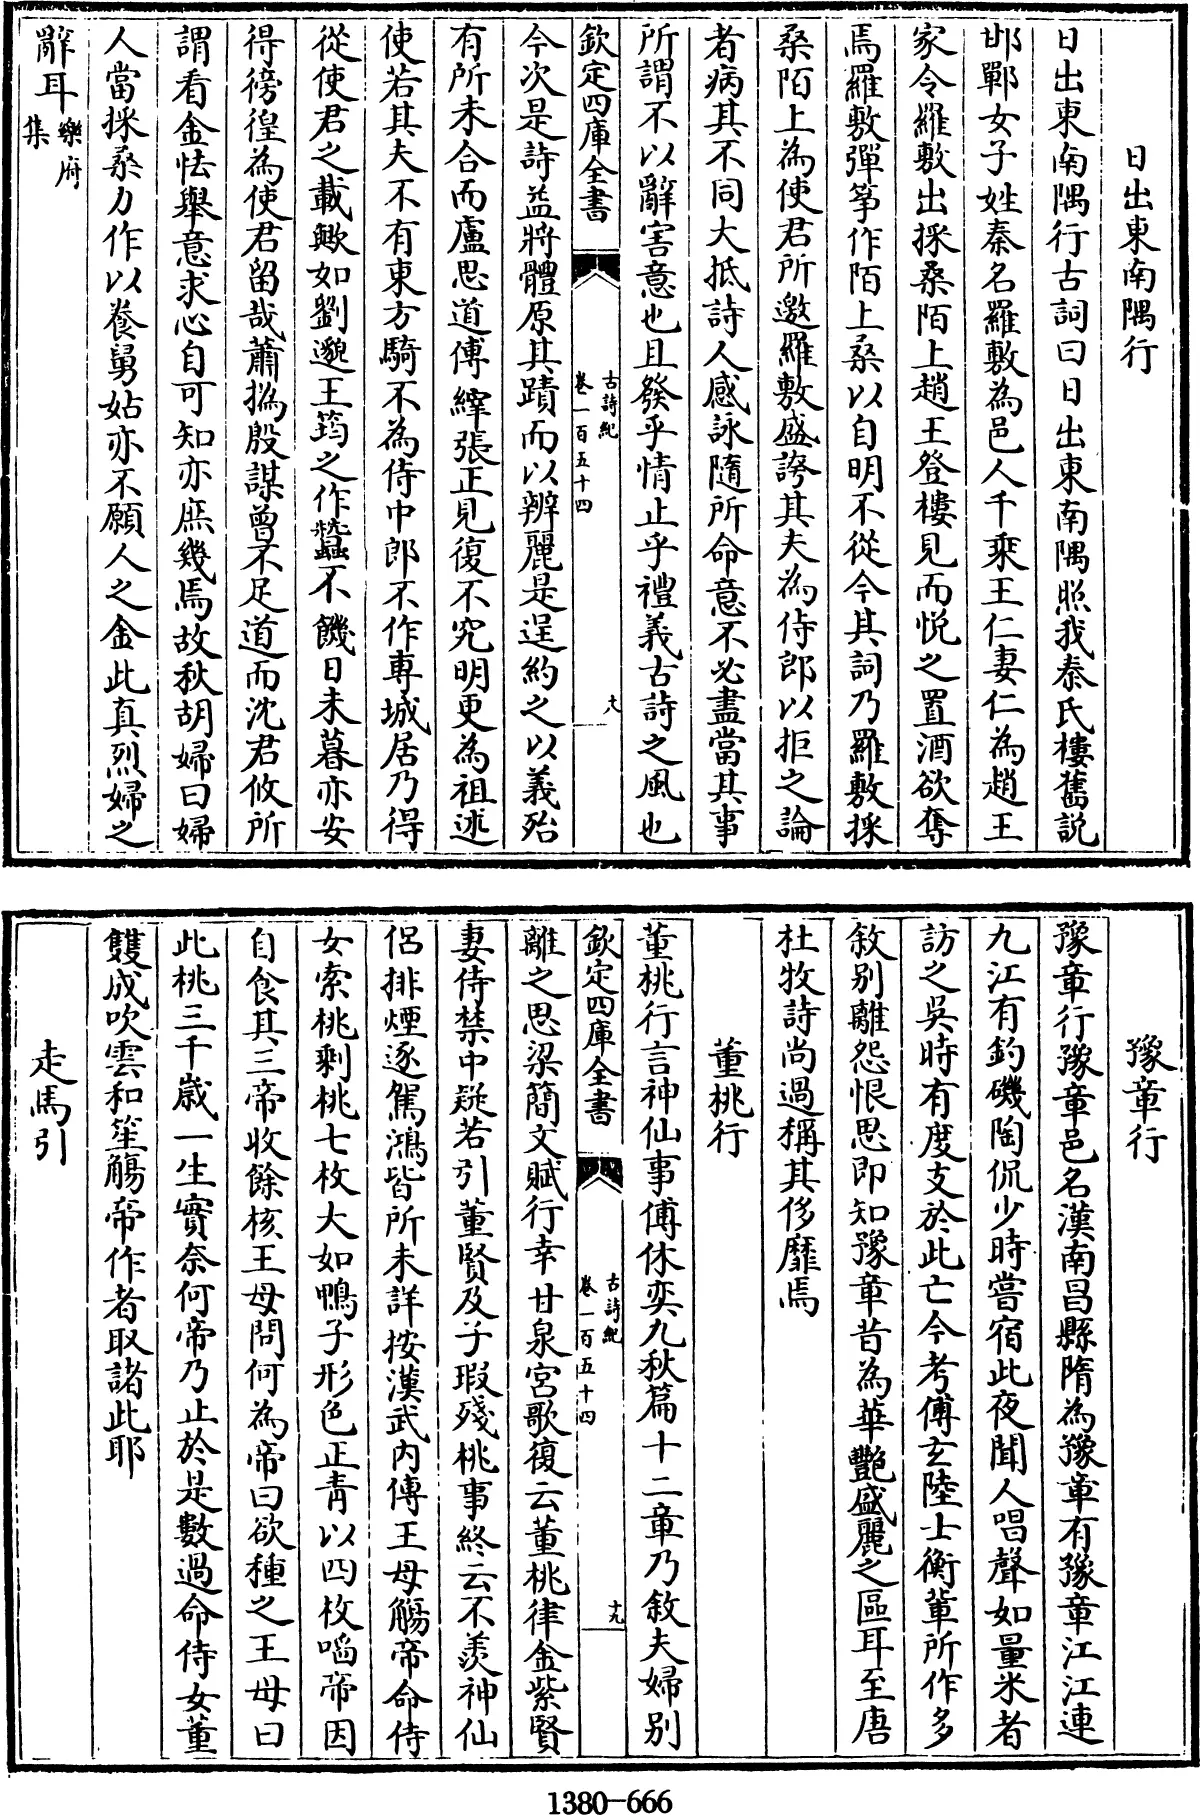 日出東南隅行
日出東南隅行古詞曰日出東南隅照我秦氏樓舊説
邯鄲女子姓秦名羅敷為邑人千乘王仁妻仁為趙王
家令羅敷出採桑陌上趙王登樓見而悦之置酒欲奪
焉羅敷彈筝作陌上桑以自明不從今其詞乃羅敷採
桑陌上為使君所邀羅敷盛誇其夫為侍郎以拒之論
者病其不同大抵詩人感詠隨所命意不必盡當其事
所謂不以辭害意也且發乎情止乎禮義古詩之風也
欽定四庫全書
古詩紀
卷一百五十四
十八
今次是詩益將體原其蹟而以辨麗是逞約之以義殆
有所未合而盧思道傅縡張正見復不究明更為祖述
使若其夫不有東方騎不為侍中郎不作專城居乃得
從使君之載歟如劉邈王筠之作蠶不饑日未暮亦安
得徬徨為使君留哉蕭撝殷謀曾不足道而沈君攸所
謂看金怯舉意求心自可知亦庶幾焉故秋胡婦曰婦
人當採桑力作以養舅姑亦不願人之金此真烈婦之
辭耳樂府
集
豫章行
豫章行豫章邑名漢南昌縣隋為豫章有豫章江江連
九江有釣磯陶侃少時嘗宿此夜聞人唱聲如量米者
訪之吳時有度支於此亡今考傅玄陸士衡輩所作多
敘别離怨恨思即知豫章昔為華艷盛麗之區耳至唐
杜牧詩尚過稱其侈靡焉
董桃行
董桃行言神仙事傅休奕九秋篇十二章乃敘夫婦别
欽定四庫全書
古詩紀
卷一百五十四
十九
離之思梁簡文賦行幸甘泉宮歌復云董桃律金紫賢
妻侍禁中疑若引董賢及子瑕殘桃事終云不羨神仙
侶排煙逐駕鴻皆所未詳按漢武内傳王母觴帝命侍
女索桃剩桃七枚大如鴨子形色正青以四枚啗帝因
自食其三帝收餘核王母問何為帝曰欲種之王母曰
此桃三千歲一生實奈何帝乃止於是數過命侍女董
雙成吹雲和笙觴帝作者取諸此耶
走馬引
1380-666